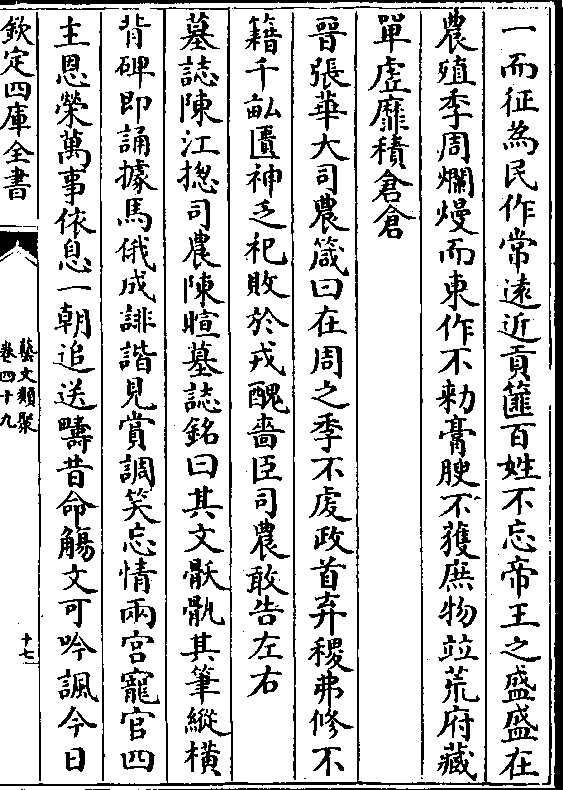 一而征為民作常遠近貢篚百姓不忘帝王之盛盛在
農殖季周爛熳而東作不勑膏腴不獲庶物竝荒府藏
單虚靡積倉倉
晉張華大司農箴曰在周之季不䖍政首弃稷弗修不
籍千畝匱神乏祀敗於戎醜嗇臣司農敢告左右
墓誌陳江摠司農陳暄墓誌銘曰其文骩骳其筆縱横
背碑即誦據馬俄成誹諧見賞調笑忘情兩宫寵官四
主恩榮萬事依息一朝追送疇昔命觴文可吟諷今日
欽定四庫全書
藝文類聚
卷四十九
十七